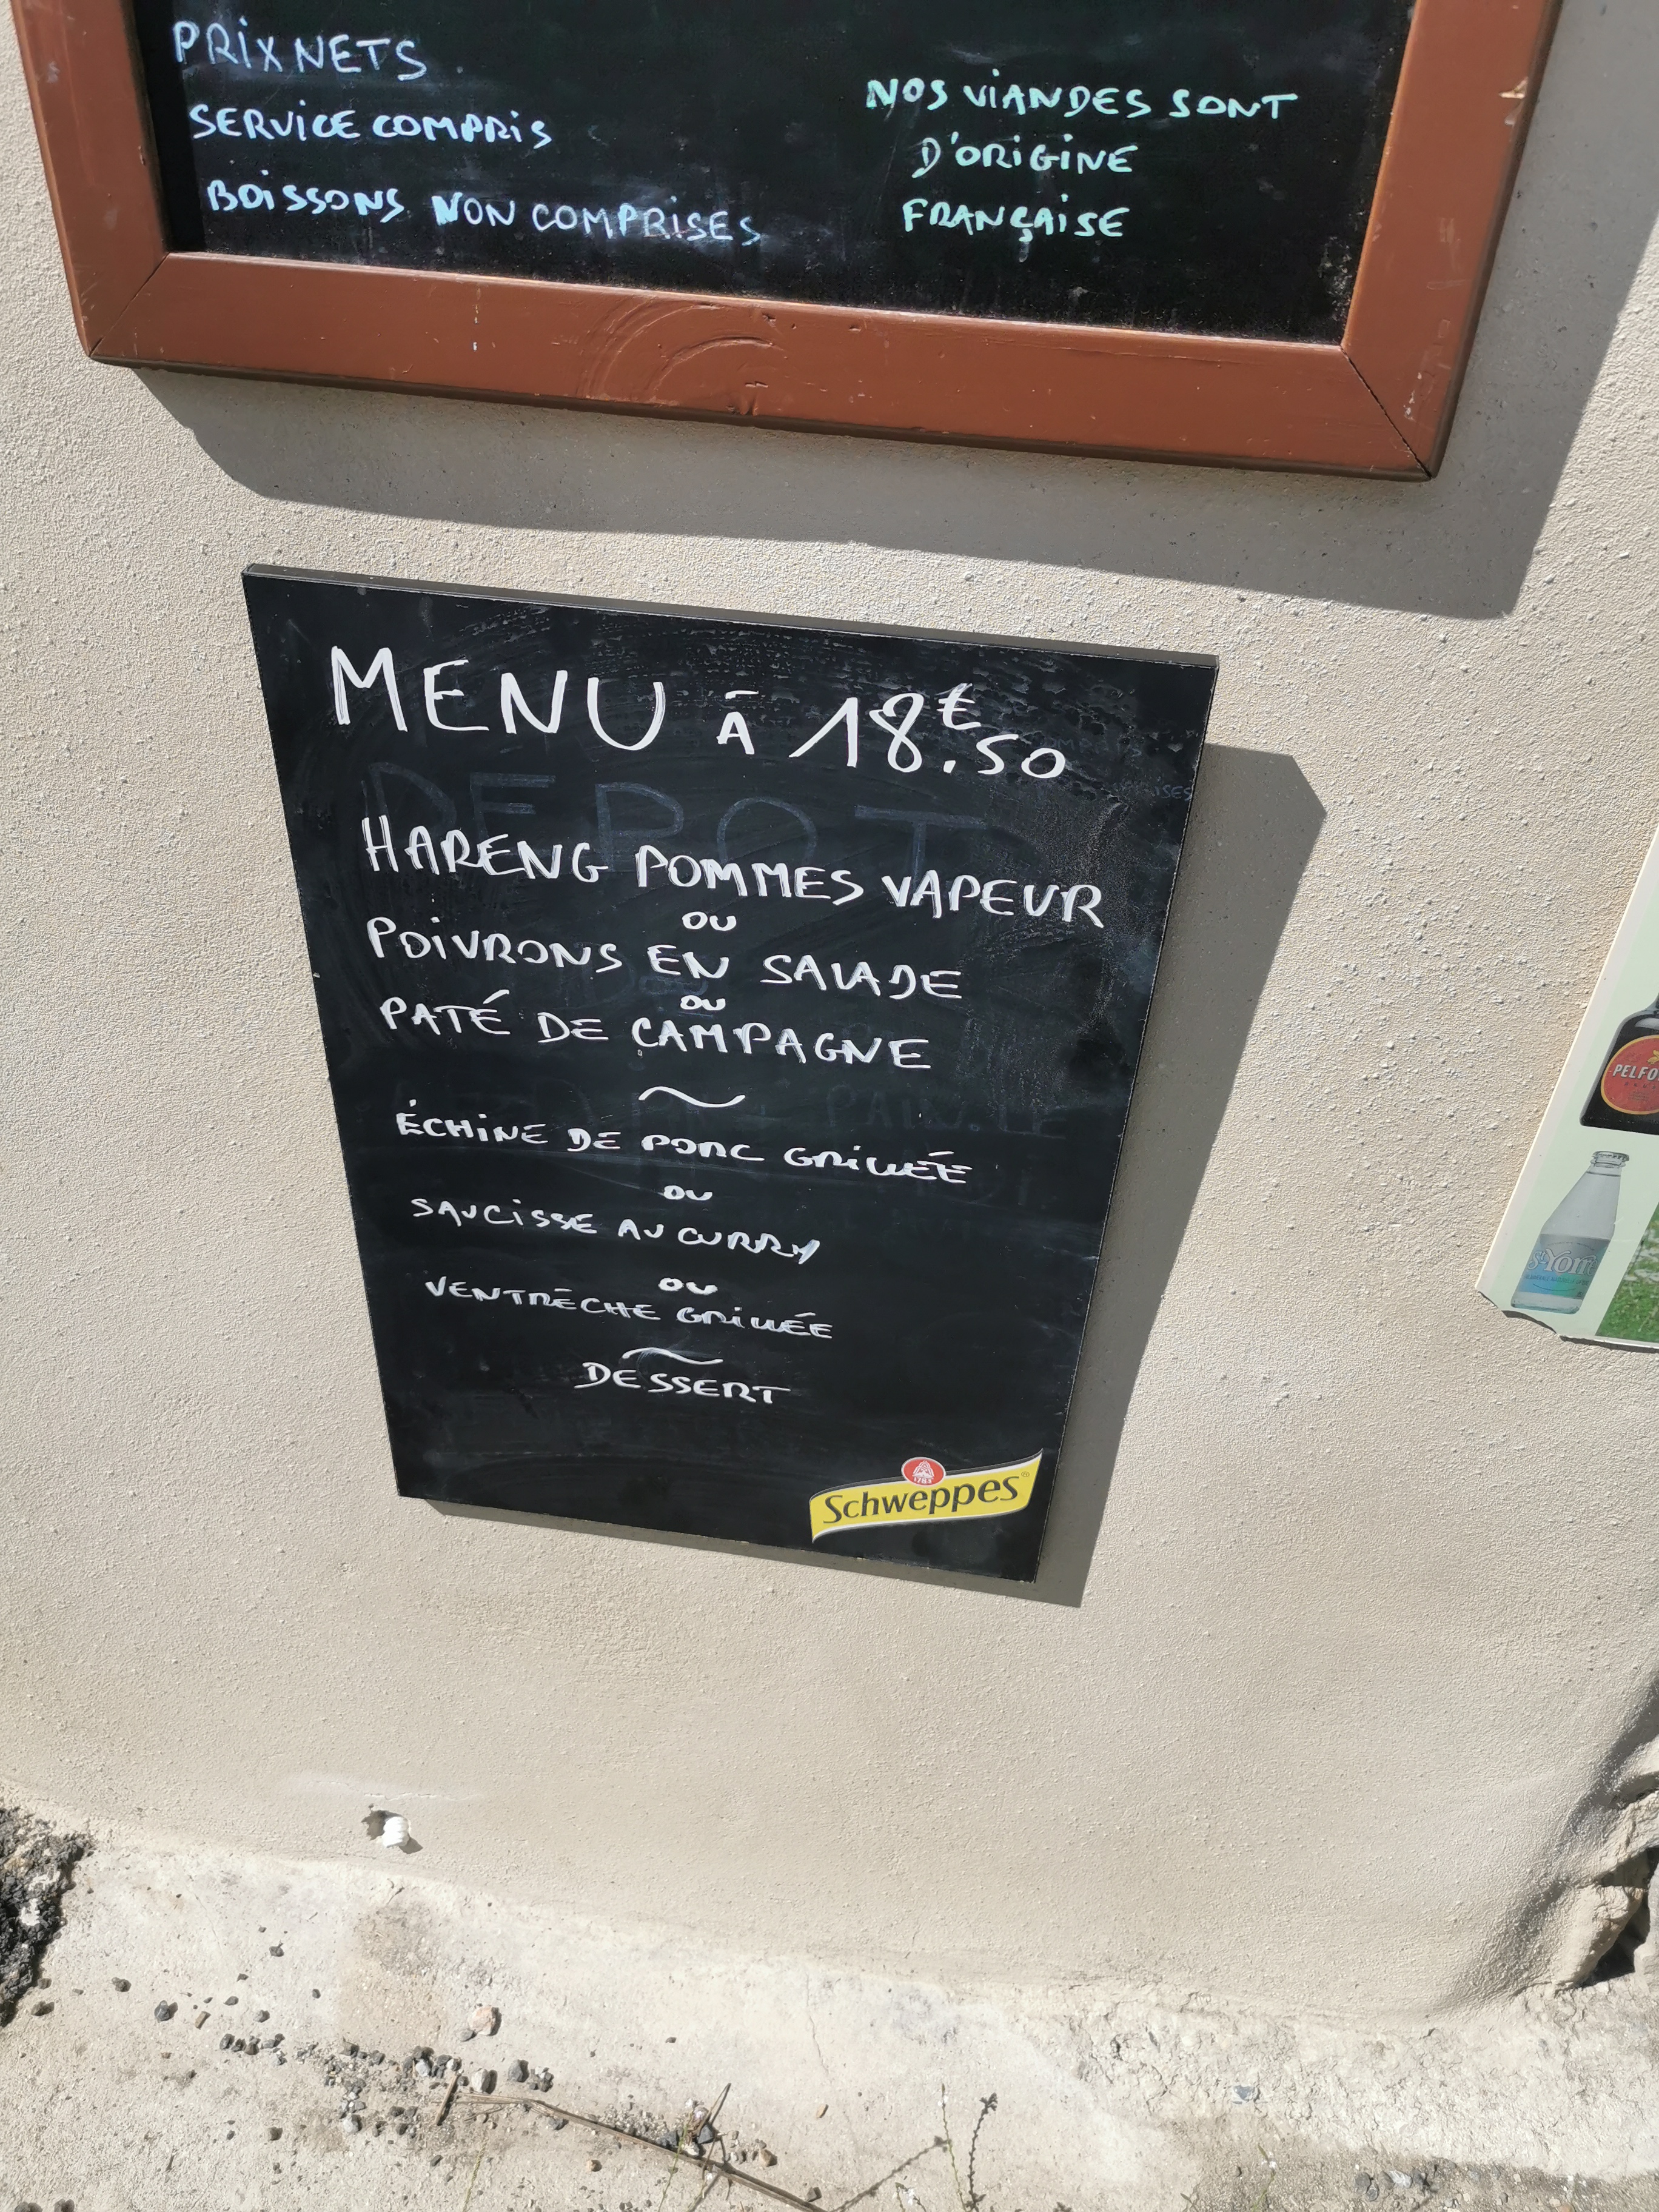 PRIX NETS
SERVICE COMPRIS
BOISSONS NON COMPRISES
NOS VIANDES SONT
D'ORIGINE
FRANÇAISE
MENU À 18€.50
HARENG POMMES VAPEUR
OU
POIVRONS EN SALADE
OU
PATÉ DE CAMPAGNE
~
ÉCHINE DE PORC GRILLÉE
OU
SAUCISSE AU CURRY
OU
VENTRÈCHE GRILLÉE
~
DESSERT
1783
Schweppes
DEPOT
PAIN
PELFO
St Yorre